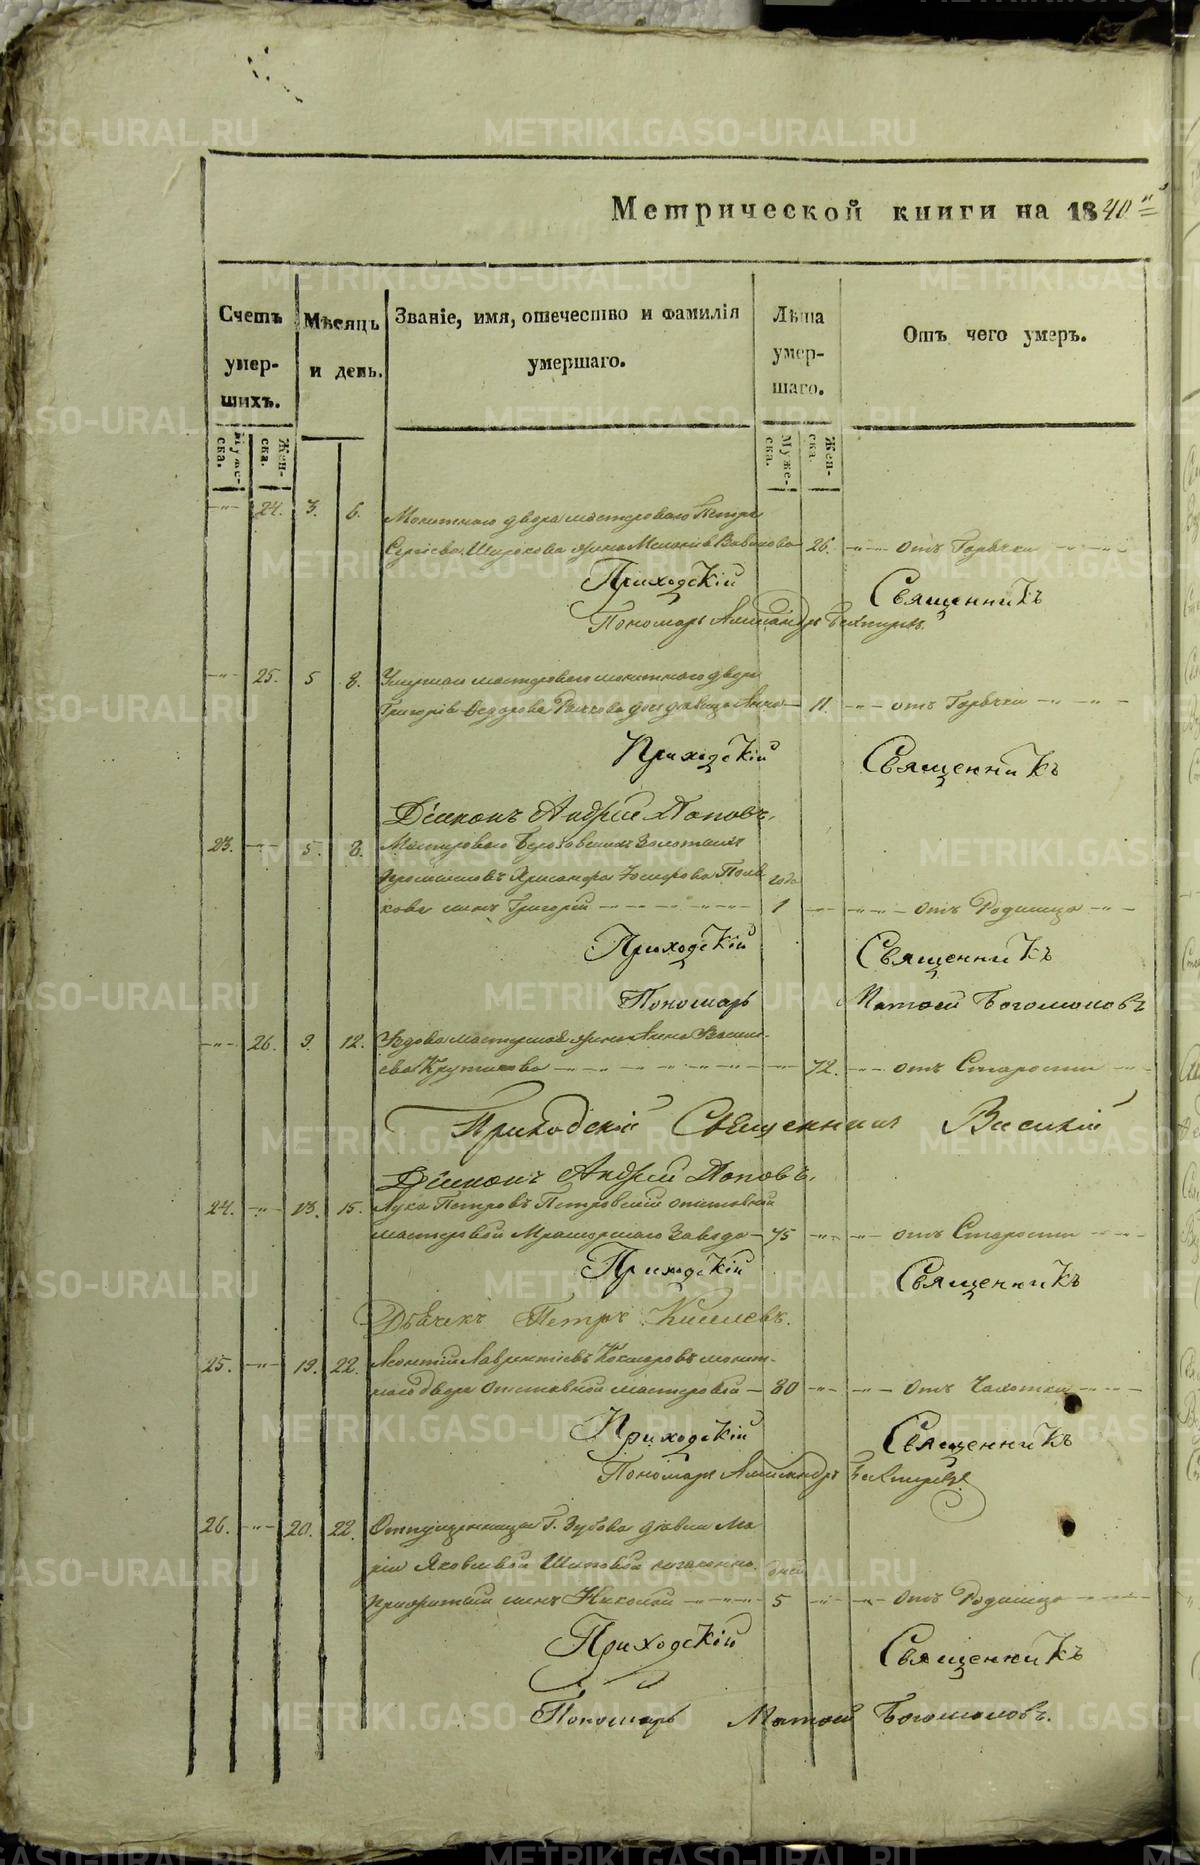 Метрической книги на 1840-й
Счетъ умер-шихъ.
Муже-ска.
Жен-ска.
Мѣсяцъ и день.
Званіе, имя, отечество и фамилія умершаго.
Лѣта умер-шаго.
Муже-ска.
Жен-ска.
Отъ чего умеръ.
-"- 24. 3. 6. Монетнаго двора мастероваго Петра
Сергѣева Широкова жена 26. отъ Горячки
Приходскій Священникъ
Пономарь Александръ
-"- 25. 5 8. Умершаго мастероваго монетнаго двора
Григорія Федорова дочь дѣвица Анна 11. отъ Горячки
Приходскій Священникъ
Діаконъ Андрей Поповъ.
23. -"- 5. 8. Мастероваго Березовскихъ Золотыхъ
промысловъ года
кова сынъ Григорій 1 отъ Родимца
Приходскій Священникъ
Пономарь Матфей Богомоловъ
-"- 26. 9. 12. Вдова мастерская жена Анна Василь-
ева Крутикова 72. отъ Старости
Приходскій Священникъ Василій
Діаконъ Андрей Поповъ.
24. -"- 13. 15. Лука Петровъ Петровскій отставной
мастеровой Мраморскаго Завода 75 отъ Старости
Приходскій Священникъ
Дьячекъ Петръ Киселевъ.
25. -"- 19. 22. Леонтій Лаврентіевъ монет-
наго двора отставной мастеровой 80 отъ Чахотки
Приходскій Священникъ
Пономарь Александръ
26. -"- 20. 22. Отпущенницы Г. Зубова дѣвки Ма
ріи Яковлевой незаконно дней
прижитый сынъ Николай 5 отъ Родимца
Приходскій Священникъ
Пономарь Матфей Богомоловъ.
METRIKI.GASO-URAL.RU